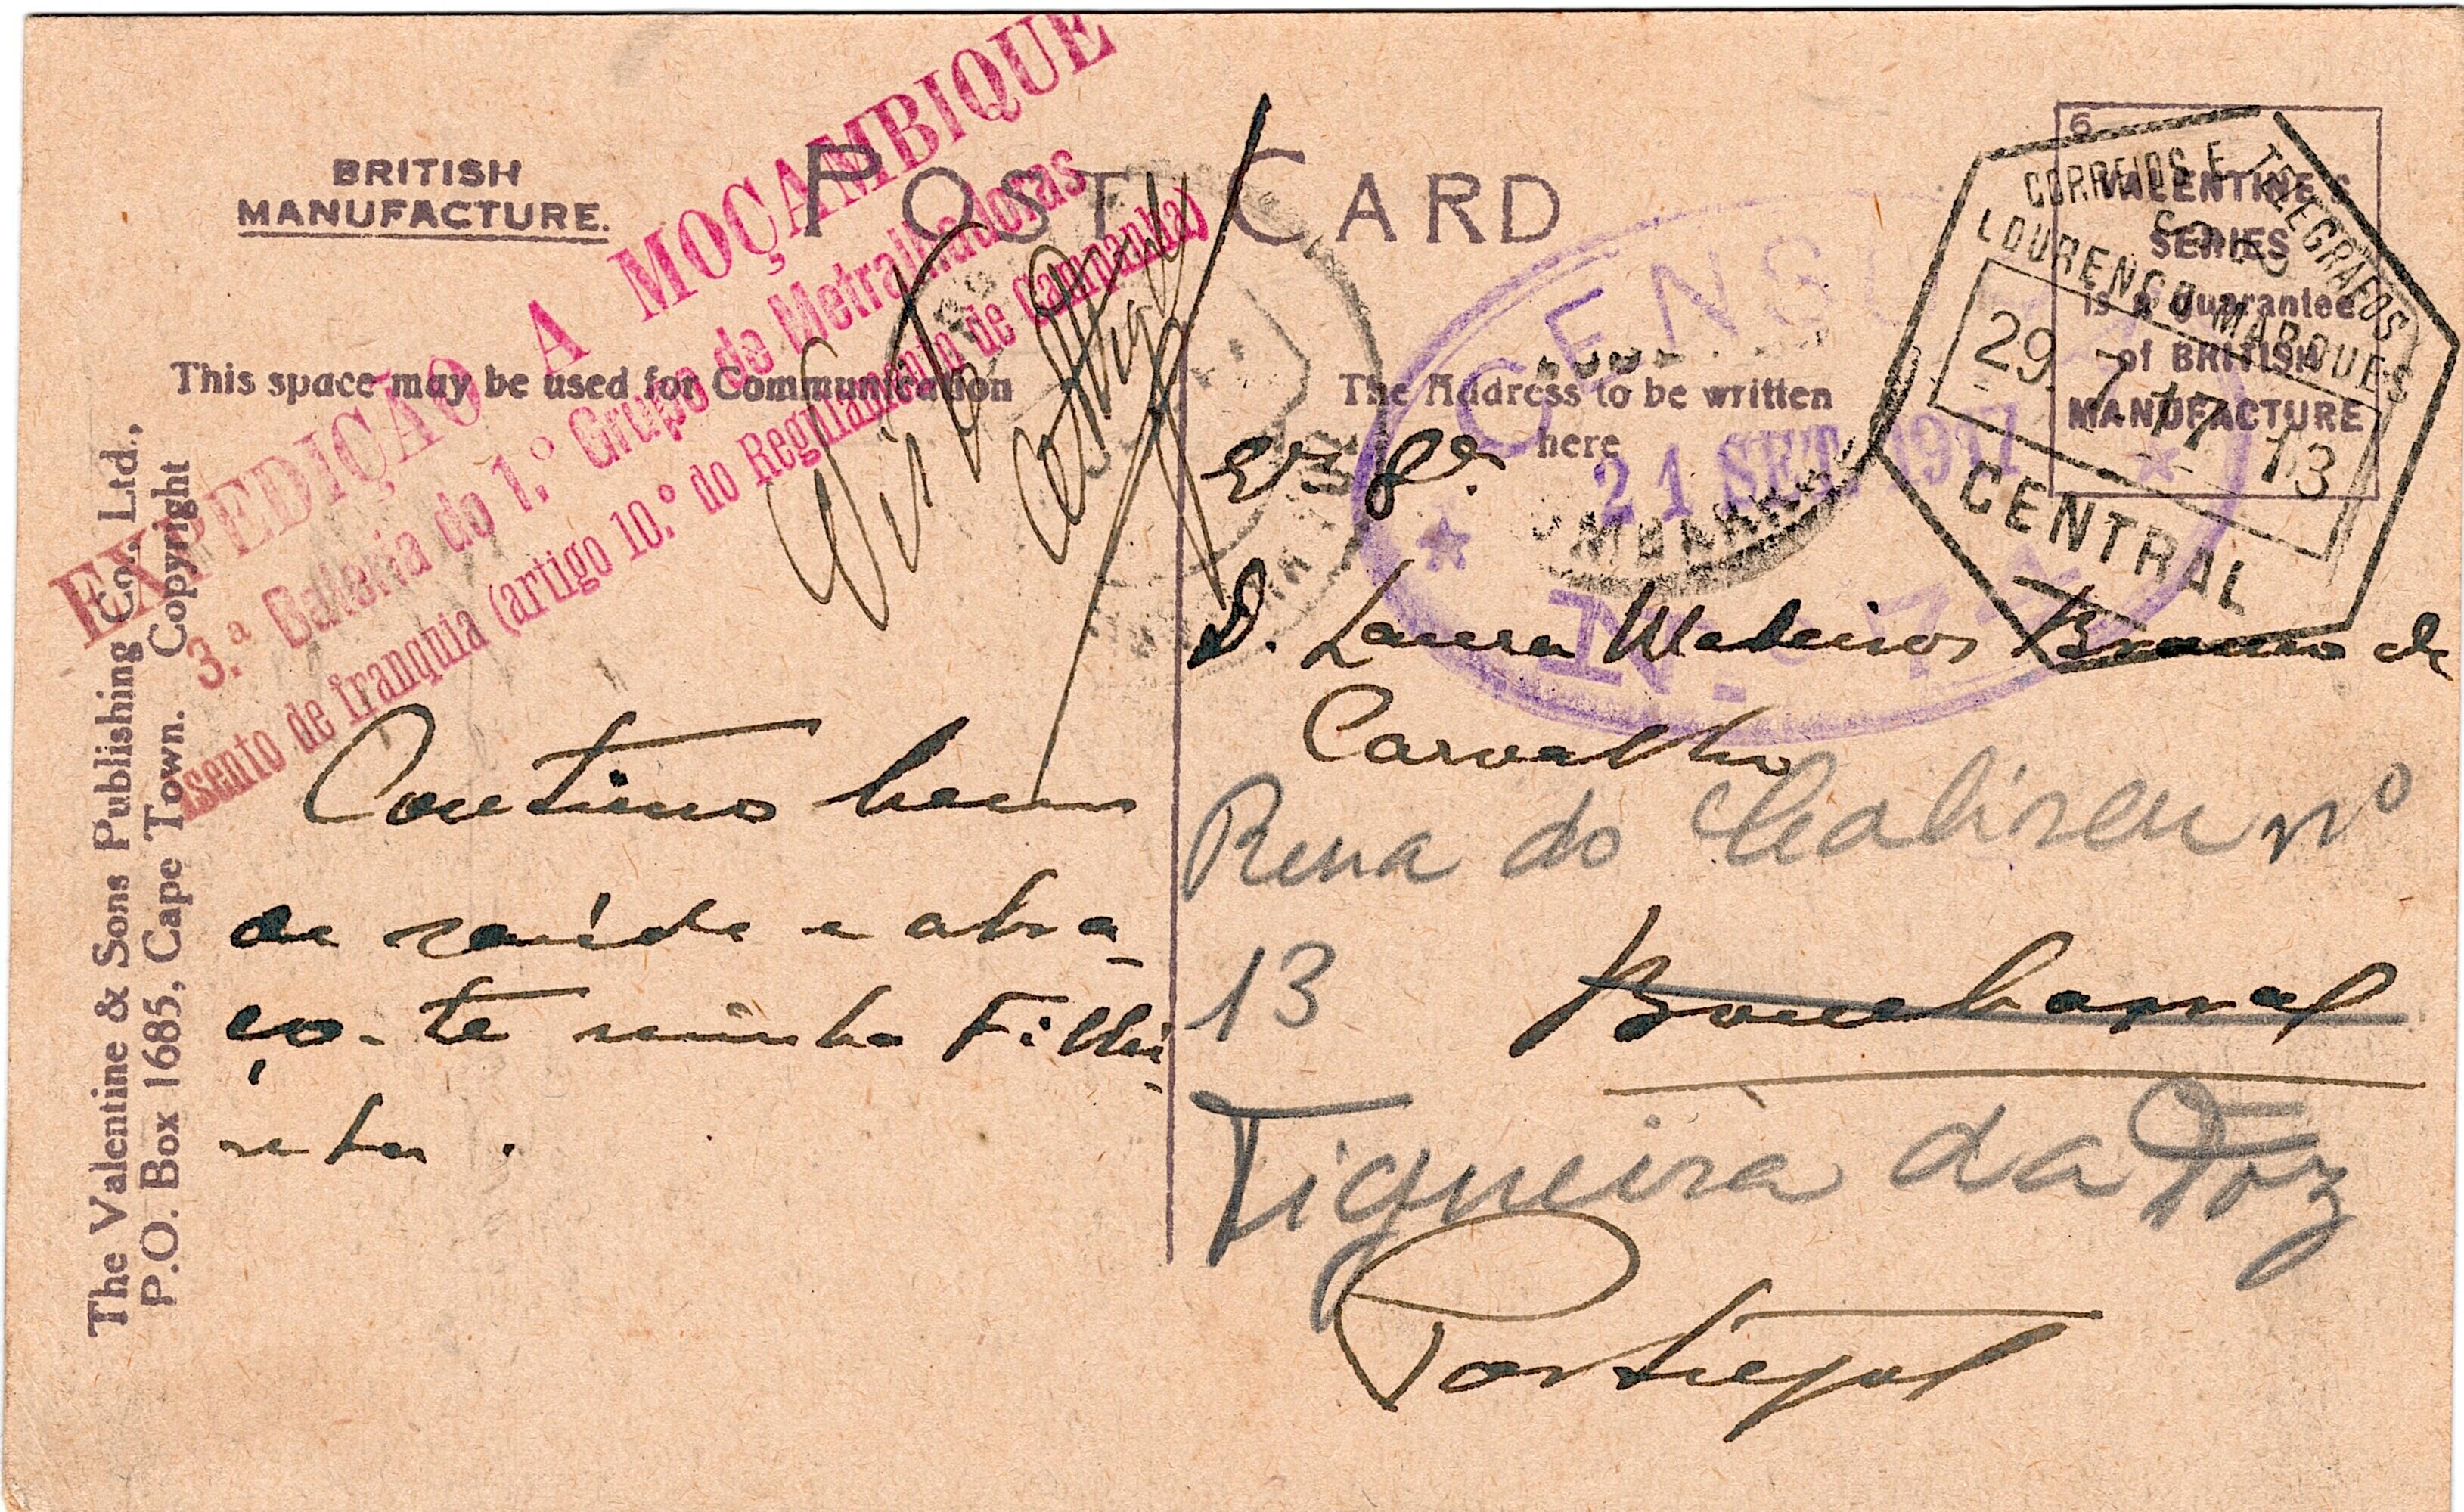 BRITISH
MANUFACTURE.
POST CARD
EXPEDIÇÃO A MOÇAMBIQUE
3.ª Bateria do 1.º Grupo de Metralhadoras
Isento de franquia (artigo 10.º do Regulamento de campanha)
This space may be used for Communication
The Address to be written
here
6
VALENTINE'S
SERIES
is a Guarantee
of BRITISH
MANUFACTURE
CORREIOS E TELEGRAFOS
LOURENÇO MARQUES
29. 7. 17 13
CENTRAL
CENSURA
21 SET. 1917
N.º 7
OMBARRAL
The Valentine & Sons Publishing Co., Ltd.,
P.O. Box 1685, Cape Town. Copyright
Continuo bem
de saúde e abra-
ço-te minha Filhi-
nha.
D. Laura Medeiros de
Carvalho
Rua do nº
13 Bombarral
Figueira da Foz
Portugal